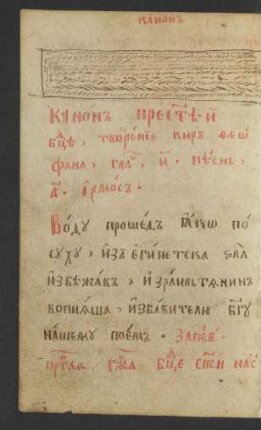 канонъ
Канонъ престѣ́й
бц҃е, творе́нїе кѵръ ѳео
фана, гла́, и҃. пѣснь,
а҃. їрмосъ.
Воду проше́дъ ꙗ́кѡ по
суху, и҆зъ египетска ѕла
и҆збѣжавъ, и҆зра́ильтѧнинъ
вопиѧ́ша, и҆збавителю бг҃у
нашему пое́мъ. Запѣв
прⷭ҇таѧ гж҃а бц҃е спс҃и на́съ